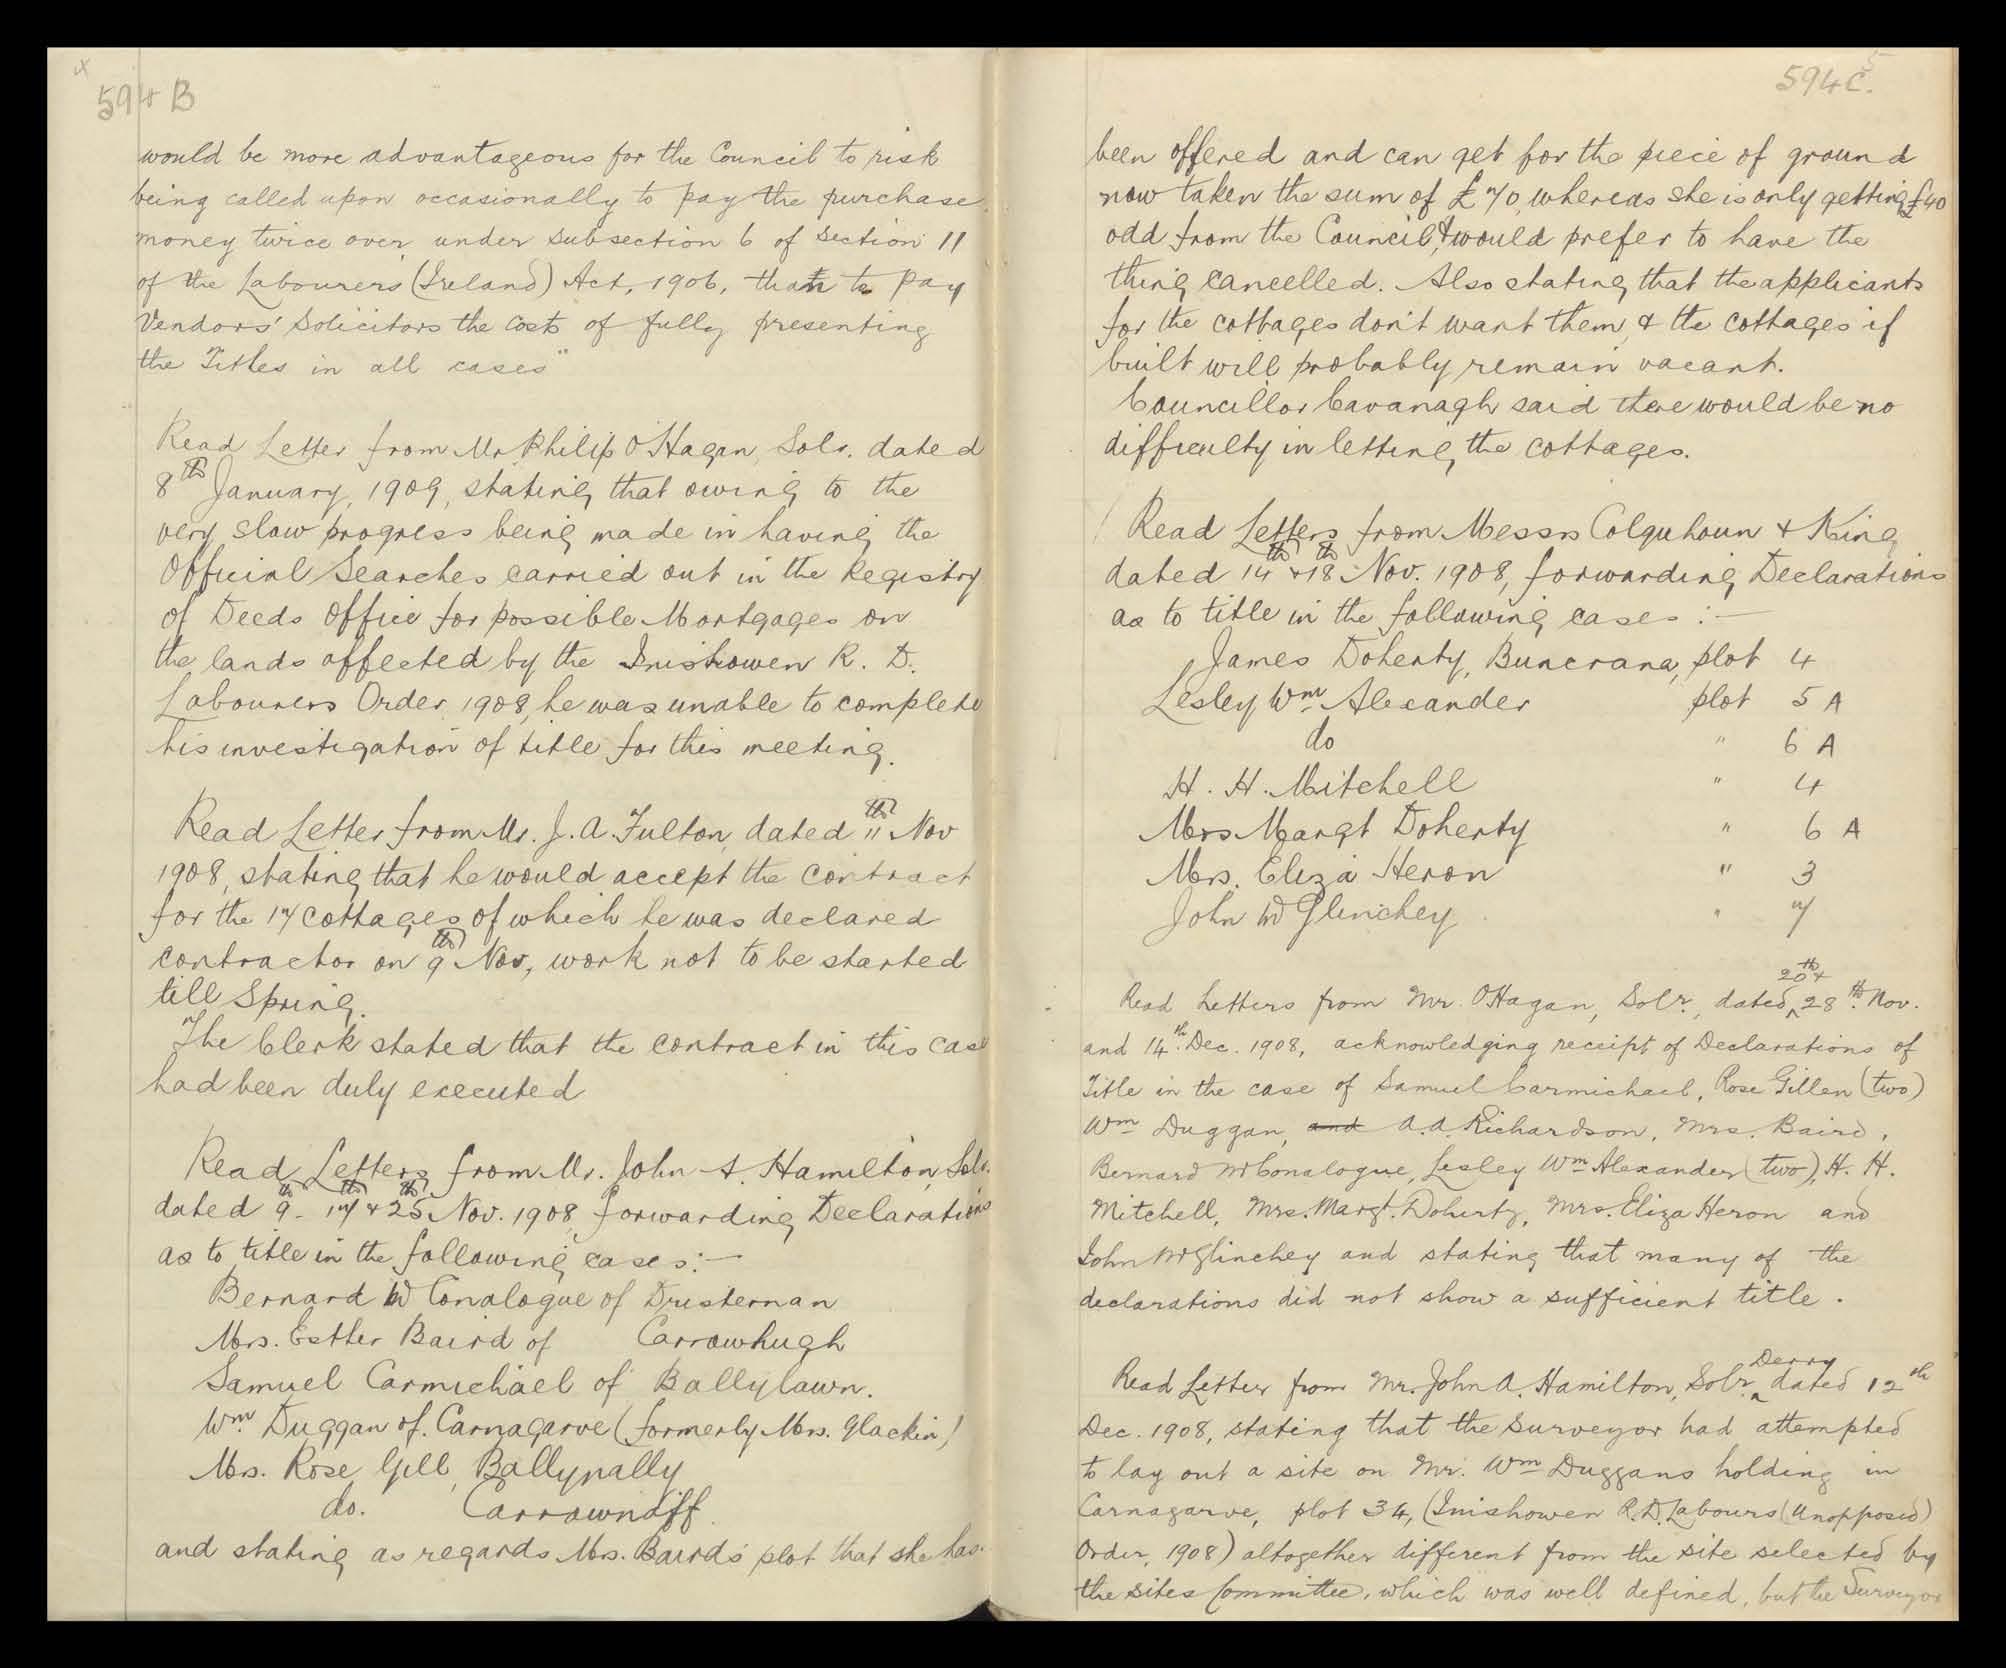 594 B
would be more advantageous for the Council to risk
being called upon occasionally to pay the purchase
money twice over under subsection 6 of section 11
of the Labourers (Ireland) Act, 1906, than to pay
Vendors' Solicitors the costs of fully presenting
the Titles in all cases"
Read Letter from Mr Philip O'Hagan, Solr. dated
8th January, 1909, stating that owing to the
very slow progress being made in having the
Official Searches carried out in the Registry
of Deeds Office for possible Mortgages on
the lands affected by the Inishowen R. D.
Labourers Order 1908, he was unable to complete
his investigation of title for this meeting.
Read Letter from Mr. J. A. Fulton, dated 11th Nov
1908, stating that he would accept the contract
for the 17 cottages of which he was declared
contractor on 9th Nov, work not to be started
till Spring.
The Clerk stated that the contract in this case
had been duly executed
Read Letters from Mr. John A. Hamilton, Solr.
dated 9th - 17th & 25th Nov. 1908, forwarding Declarations
as to title in the following cases:-
Bernard McConalogue of Dristernan
Mrs. Esther Baird of Carrowhugh
Samuel Carmichael of Ballylawn.
Wm Duggan of Carnagarve (formerly Mrs. Glackin)
Mrs. Rose Gill, Ballynally
do. Carrownaff.
and stating as regards Mrs. Baird's plot that she has
594 C.
been offered and can get for the piece of ground
now taken the sum of £70, whereas she is only getting £40
odd from the Council, & would prefer to have the
thing cancelled. Also stating that the applicants
for the cottages don't want them, & the cottages if
built will probably remain vacant.
Councillor Cavanagh said there would be no
difficulty in letting the cottages.
Read Letters from Messrs Colquhoun & King
dated 14th & 18th Nov. 1908, forwarding Declarations
as to title in the following cases :-
James Doherty, Buncrana, plot 4
Lesley Wm Alexander plot 5 A
do " 6 A
H. H. Mitchell " 4
Mrs Margt Doherty " 6 A
Mrs. Eliza Heron " 3
John McGlinchey " 7
Read Letters from Mr. O'Hagan, Solr., dated 20th & 28th Nov.
and 14th Dec. 1908, acknowledging receipt of Declarations of
Title in the case of Samuel Carmichael, Rose Gillen (two)
Wm Duggan, and A. A. Richardson, Mrs. Baird,
Bernard McConalogue, Lesley Wm Alexander (two), H. H.
Mitchell, Mrs. Margt. Doherty, Mrs. Eliza Heron and
John McGlinchey and stating that many of the
declarations did not show a sufficient title.
Read Letter from Mr. John A. Hamilton, Solr. Derry dated 12th
Dec. 1908, stating that the Surveyor had attempted
to lay out a site on Mr. Wm Duggans holding in
Carnagarve, plot 34, (Inishowen R.D. Labours (Unopposed)
Order, 1908) altogether different from the site selected by
the sites Committee, which was well defined, but the Surveyor